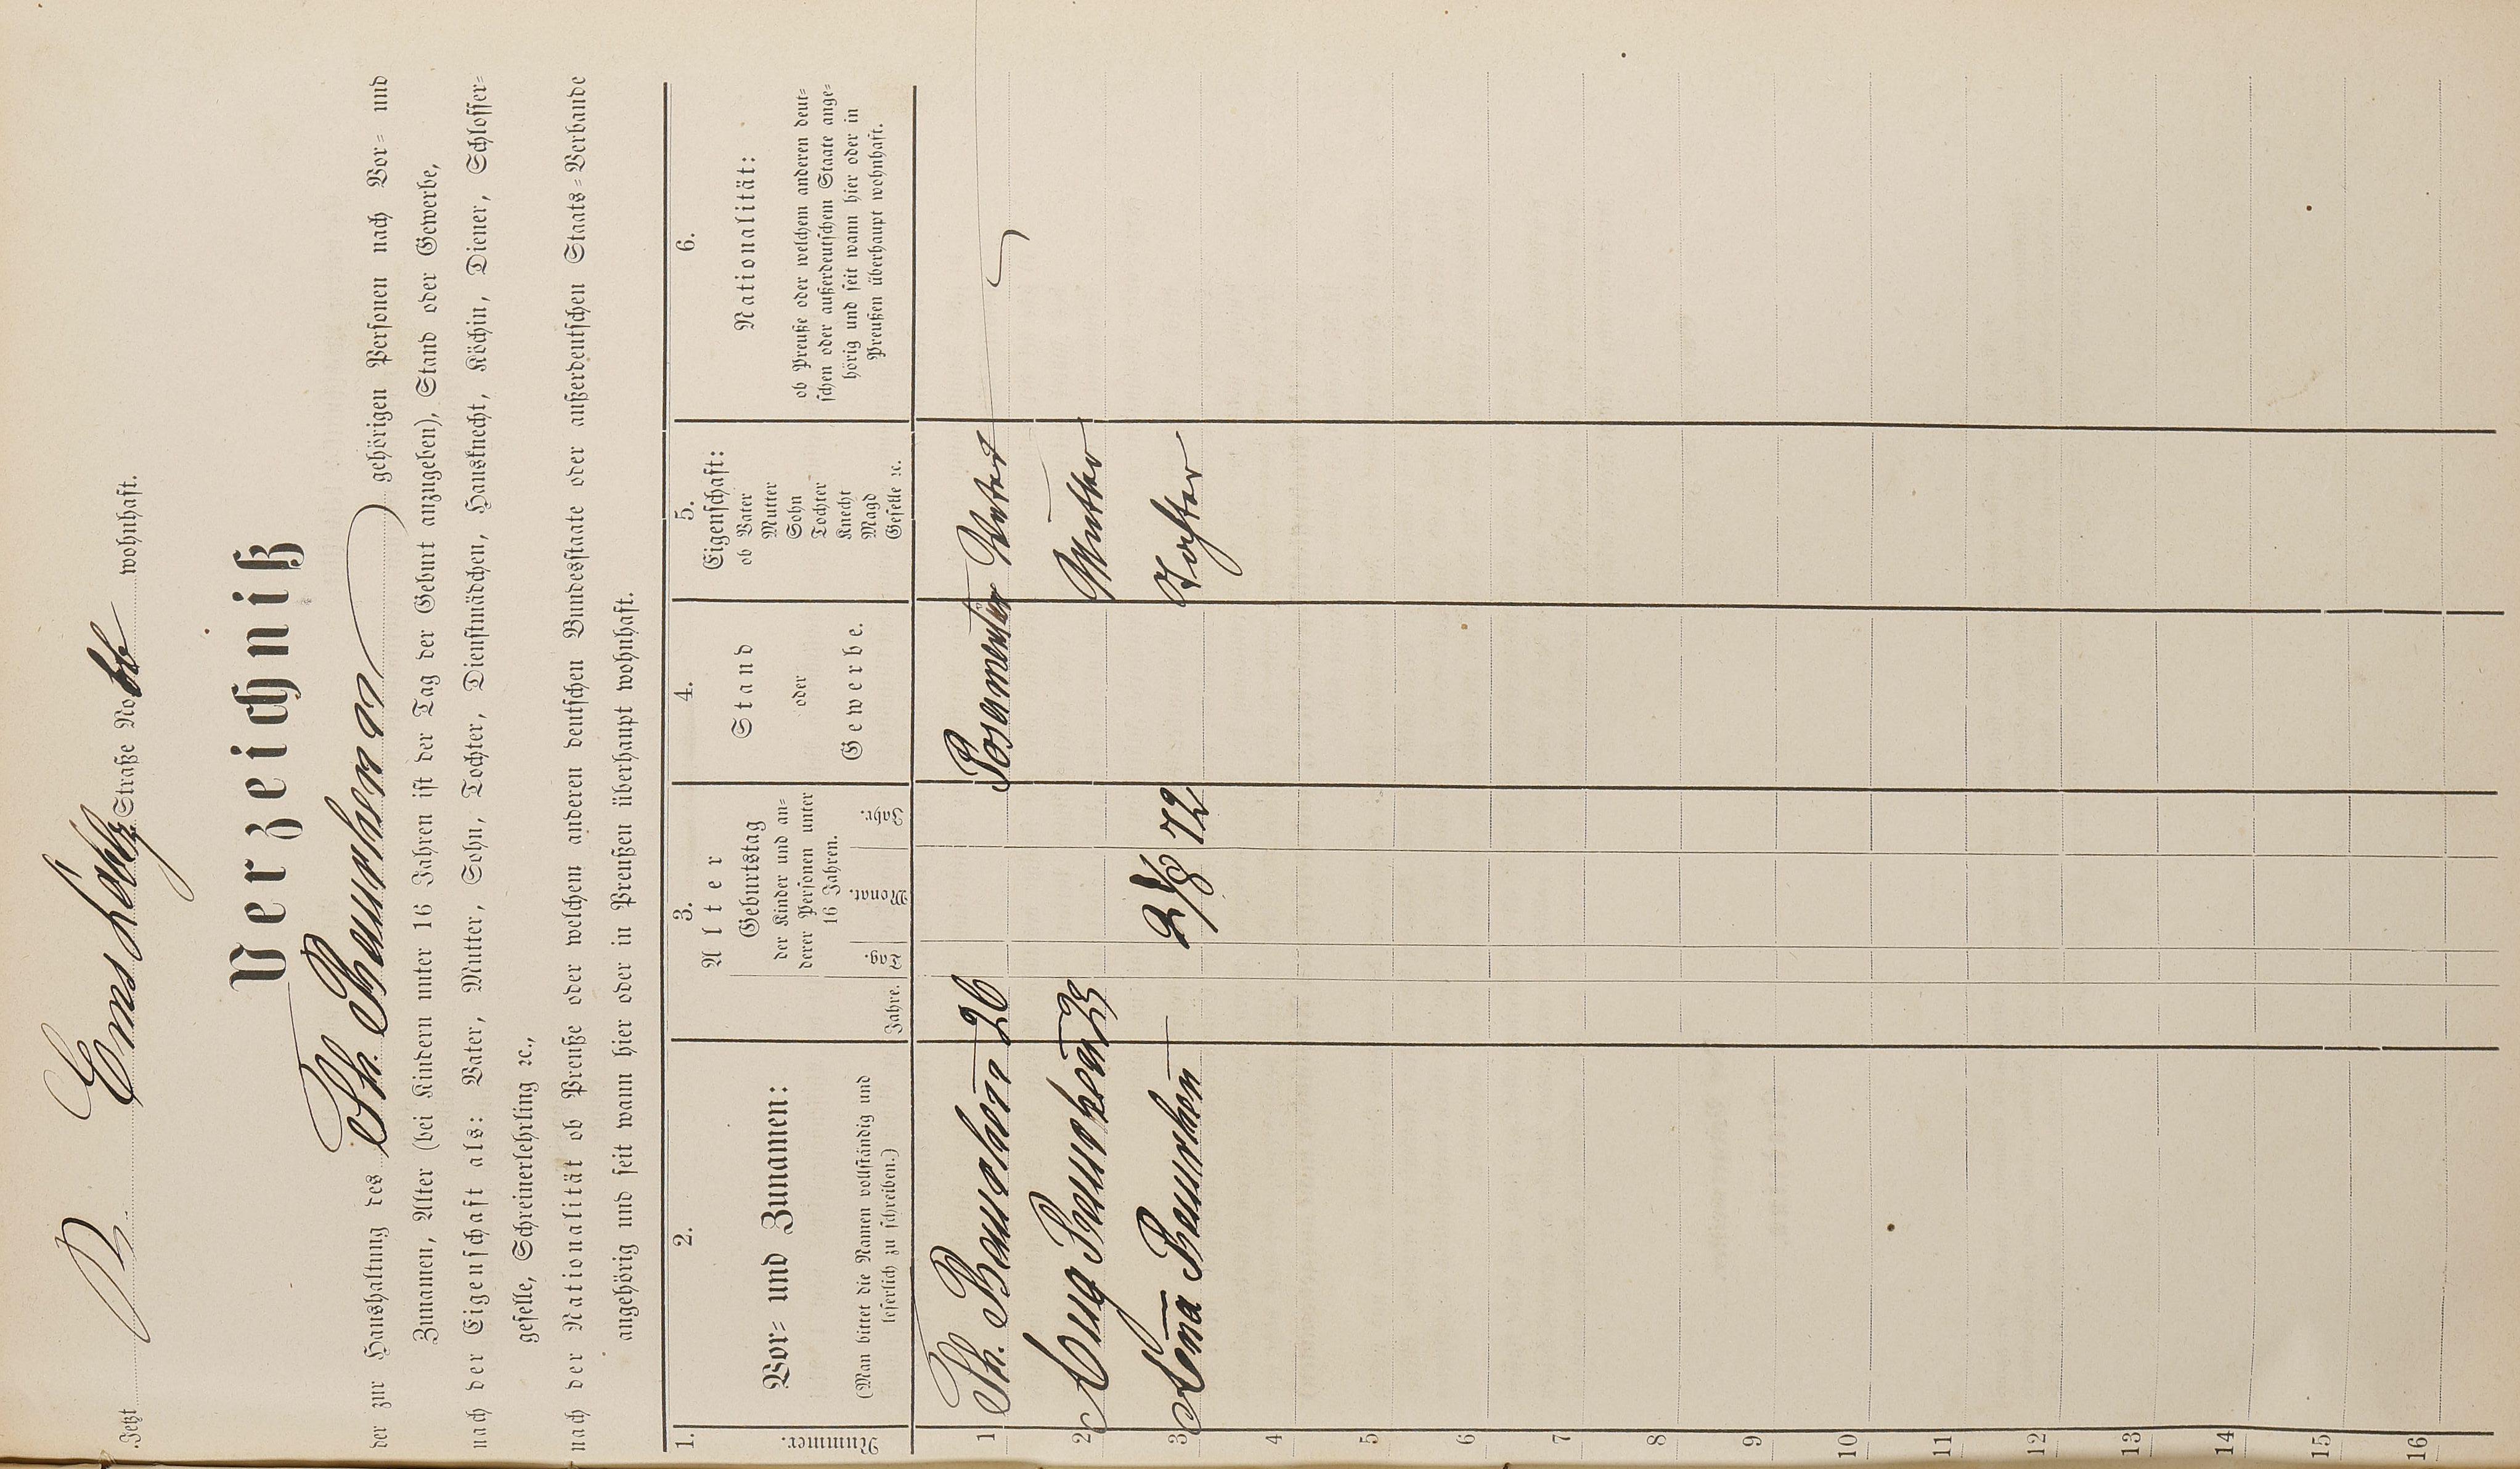 Jetzt Straße No wohnhaft.
Verzeichniß
der zur Haushaltung des Ph. Baurhenn gehörigen Personen nach Vor- und
Zunamen, Alter (bei Kindern unter 16 Jahren ist der Tag der Geburt anzugeben), Stand oder Gewerbe,
nach der Eigenschaft als: Vater, Mutter, Sohn, Tochter, Dienstmädchen, Hausknecht, Köchin, Diener, Schlosser-
geselle, Schreinerlehrling ꝛc.,
nach der Nationalität ob Preuße oder welchem anderen deutschen Bundesstaate oder außerdeutschen Staats-Verbande
angehörig und seit wann hier oder in Preußen überhaupt wohnhaft.
1.
Nummer.
2.
Vor- und Zunamen:
(Man bittet die Namen vollständig und
leserlich zu schreiben.)
3.
Alter
Jahre.
Geburtstag
der Kinder und an-
derer Personen unter
16 Jahren.
Tag. Monat. Jahr.
4.
Stand
oder
Gewerbe.
5.
Eigenschaft:
ob Vater
Mutter
Sohn
Tochter
Knecht
Magd
Geselle ꝛc.
6.
Nationalität:
ob Preuße oder welchem anderen deut-
schen oder außerdeutschem Staate ange-
hörig und seit wann hier oder in
Preußen überhaupt wohnhaft.
1 Ph. Baurhenn 26 Posamentier Vater
2 Aug Baurhenn 25 Mutter
3 Anna Baurhenn 21/8 72 Tochter
4
5
6
7
8
9
10
11
12
13
14
15
16